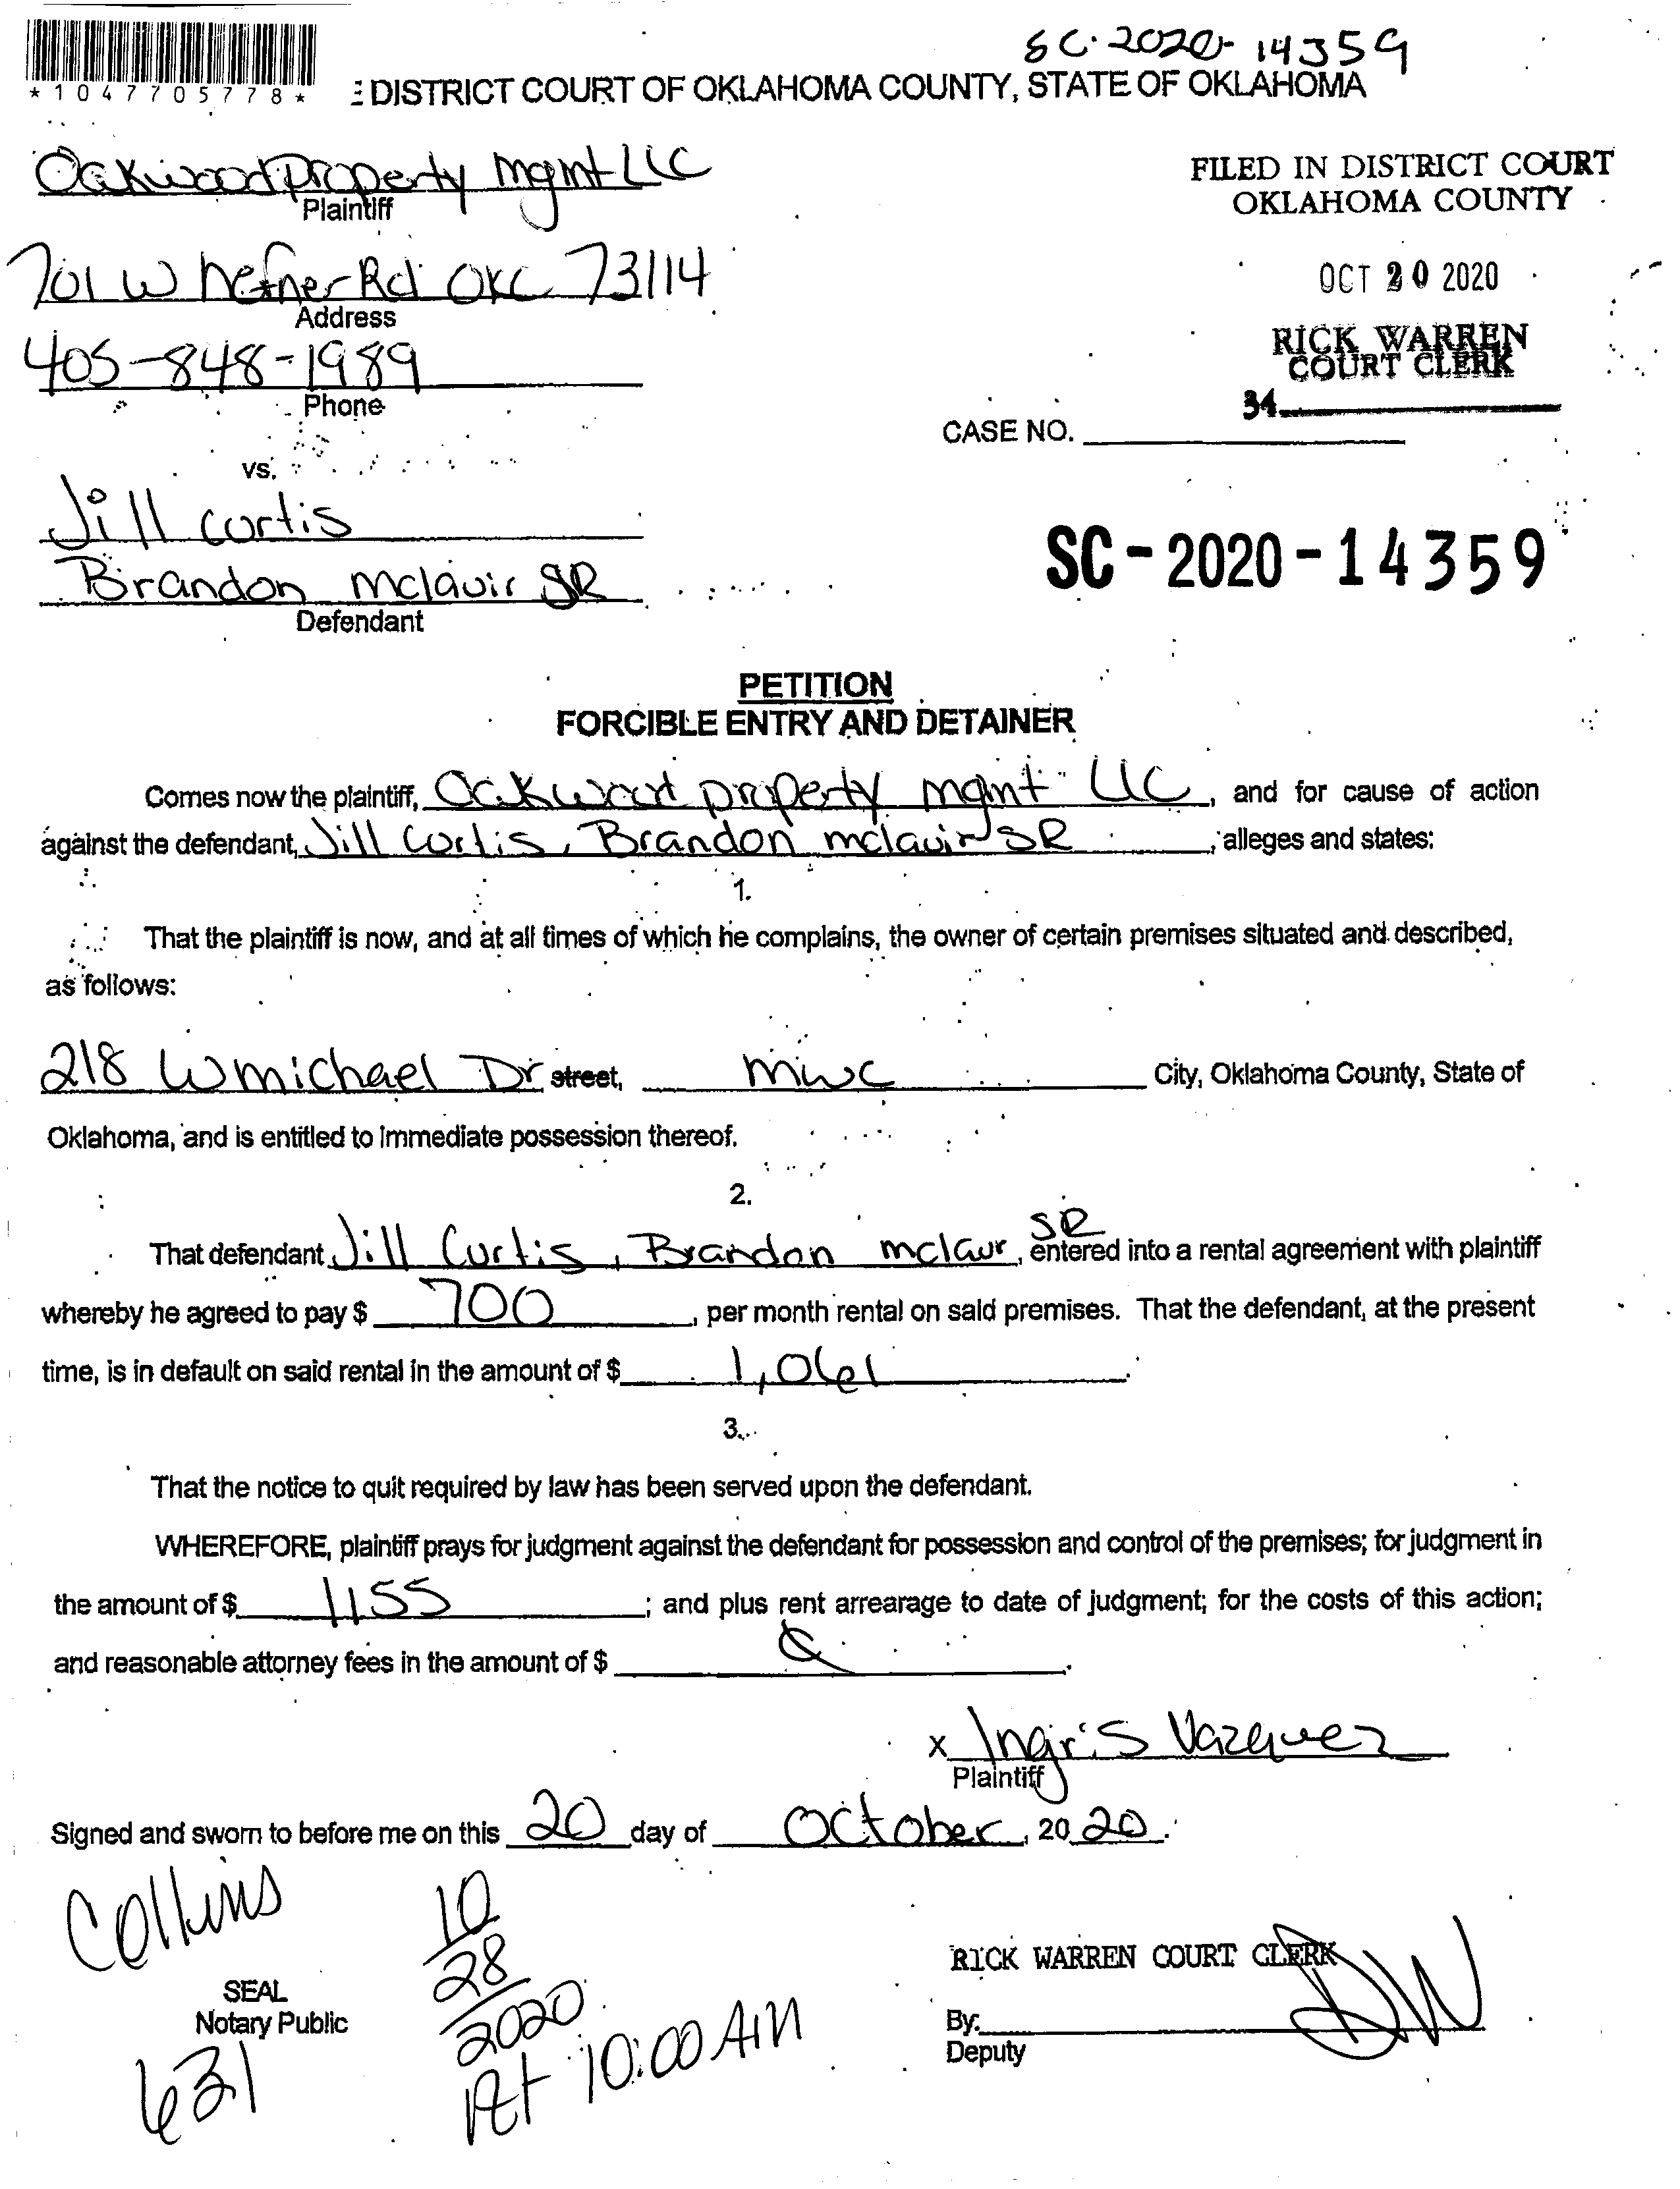 SC-2020-14359
*1047705778*
E DISTRICT COURT OF OKLAHOMA COUNTY, STATE OF OKLAHOMA
Oakwood Property mgmt LLC
Plaintiff
FILED IN DISTRICT COURT
OKLAHOMA COUNTY
701 W hefner Rd OKC 73114
Address
OCT 20 2020
405-848-1989
Phone
RICK WARREN
COURT CLERK
34
CASE NO.
vs.
Jill curtis
Brandon mclavir SR
Defendant
SC-2020-14359
PETITION
FORCIBLE ENTRY AND DETAINER
Comes now the plaintiff, Oakwood property mgmt LLC, and for cause of action
against the defendant, Jill Curtis, Brandon mclavir SR, alleges and states:
1.
That the plaintiff is now, and at all times of which he complains, the owner of certain premises situated and described,
as follows:
218 W michael Dr street, mwc City, Oklahoma County, State of
Oklahoma, and is entitled to immediate possession thereof.
2.
SR
That defendant Jill Curtis, Brandon mclaur, entered into a rental agreement with plaintiff
whereby he agreed to pay $ 700, per month rental on said premises. That the defendant, at the present
time, is in default on said rental in the amount of $ 1,061.
3.
That the notice to quit required by law has been served upon the defendant.
WHEREFORE, plaintiff prays for judgment against the defendant for possession and control of the premises; for judgment in
the amount of $ 1155; and plus rent arrearage to date of judgment; for the costs of this action;
and reasonable attorney fees in the amount of $
x Ingris Vazquez
Plaintiff
Signed and sworn to before me on this 20 day of October, 2020.
Collins
10
28
2020
At 10:00 AM
SEAL
Notary Public
631
RICK WARREN COURT CLERK
By: DW
Deputy